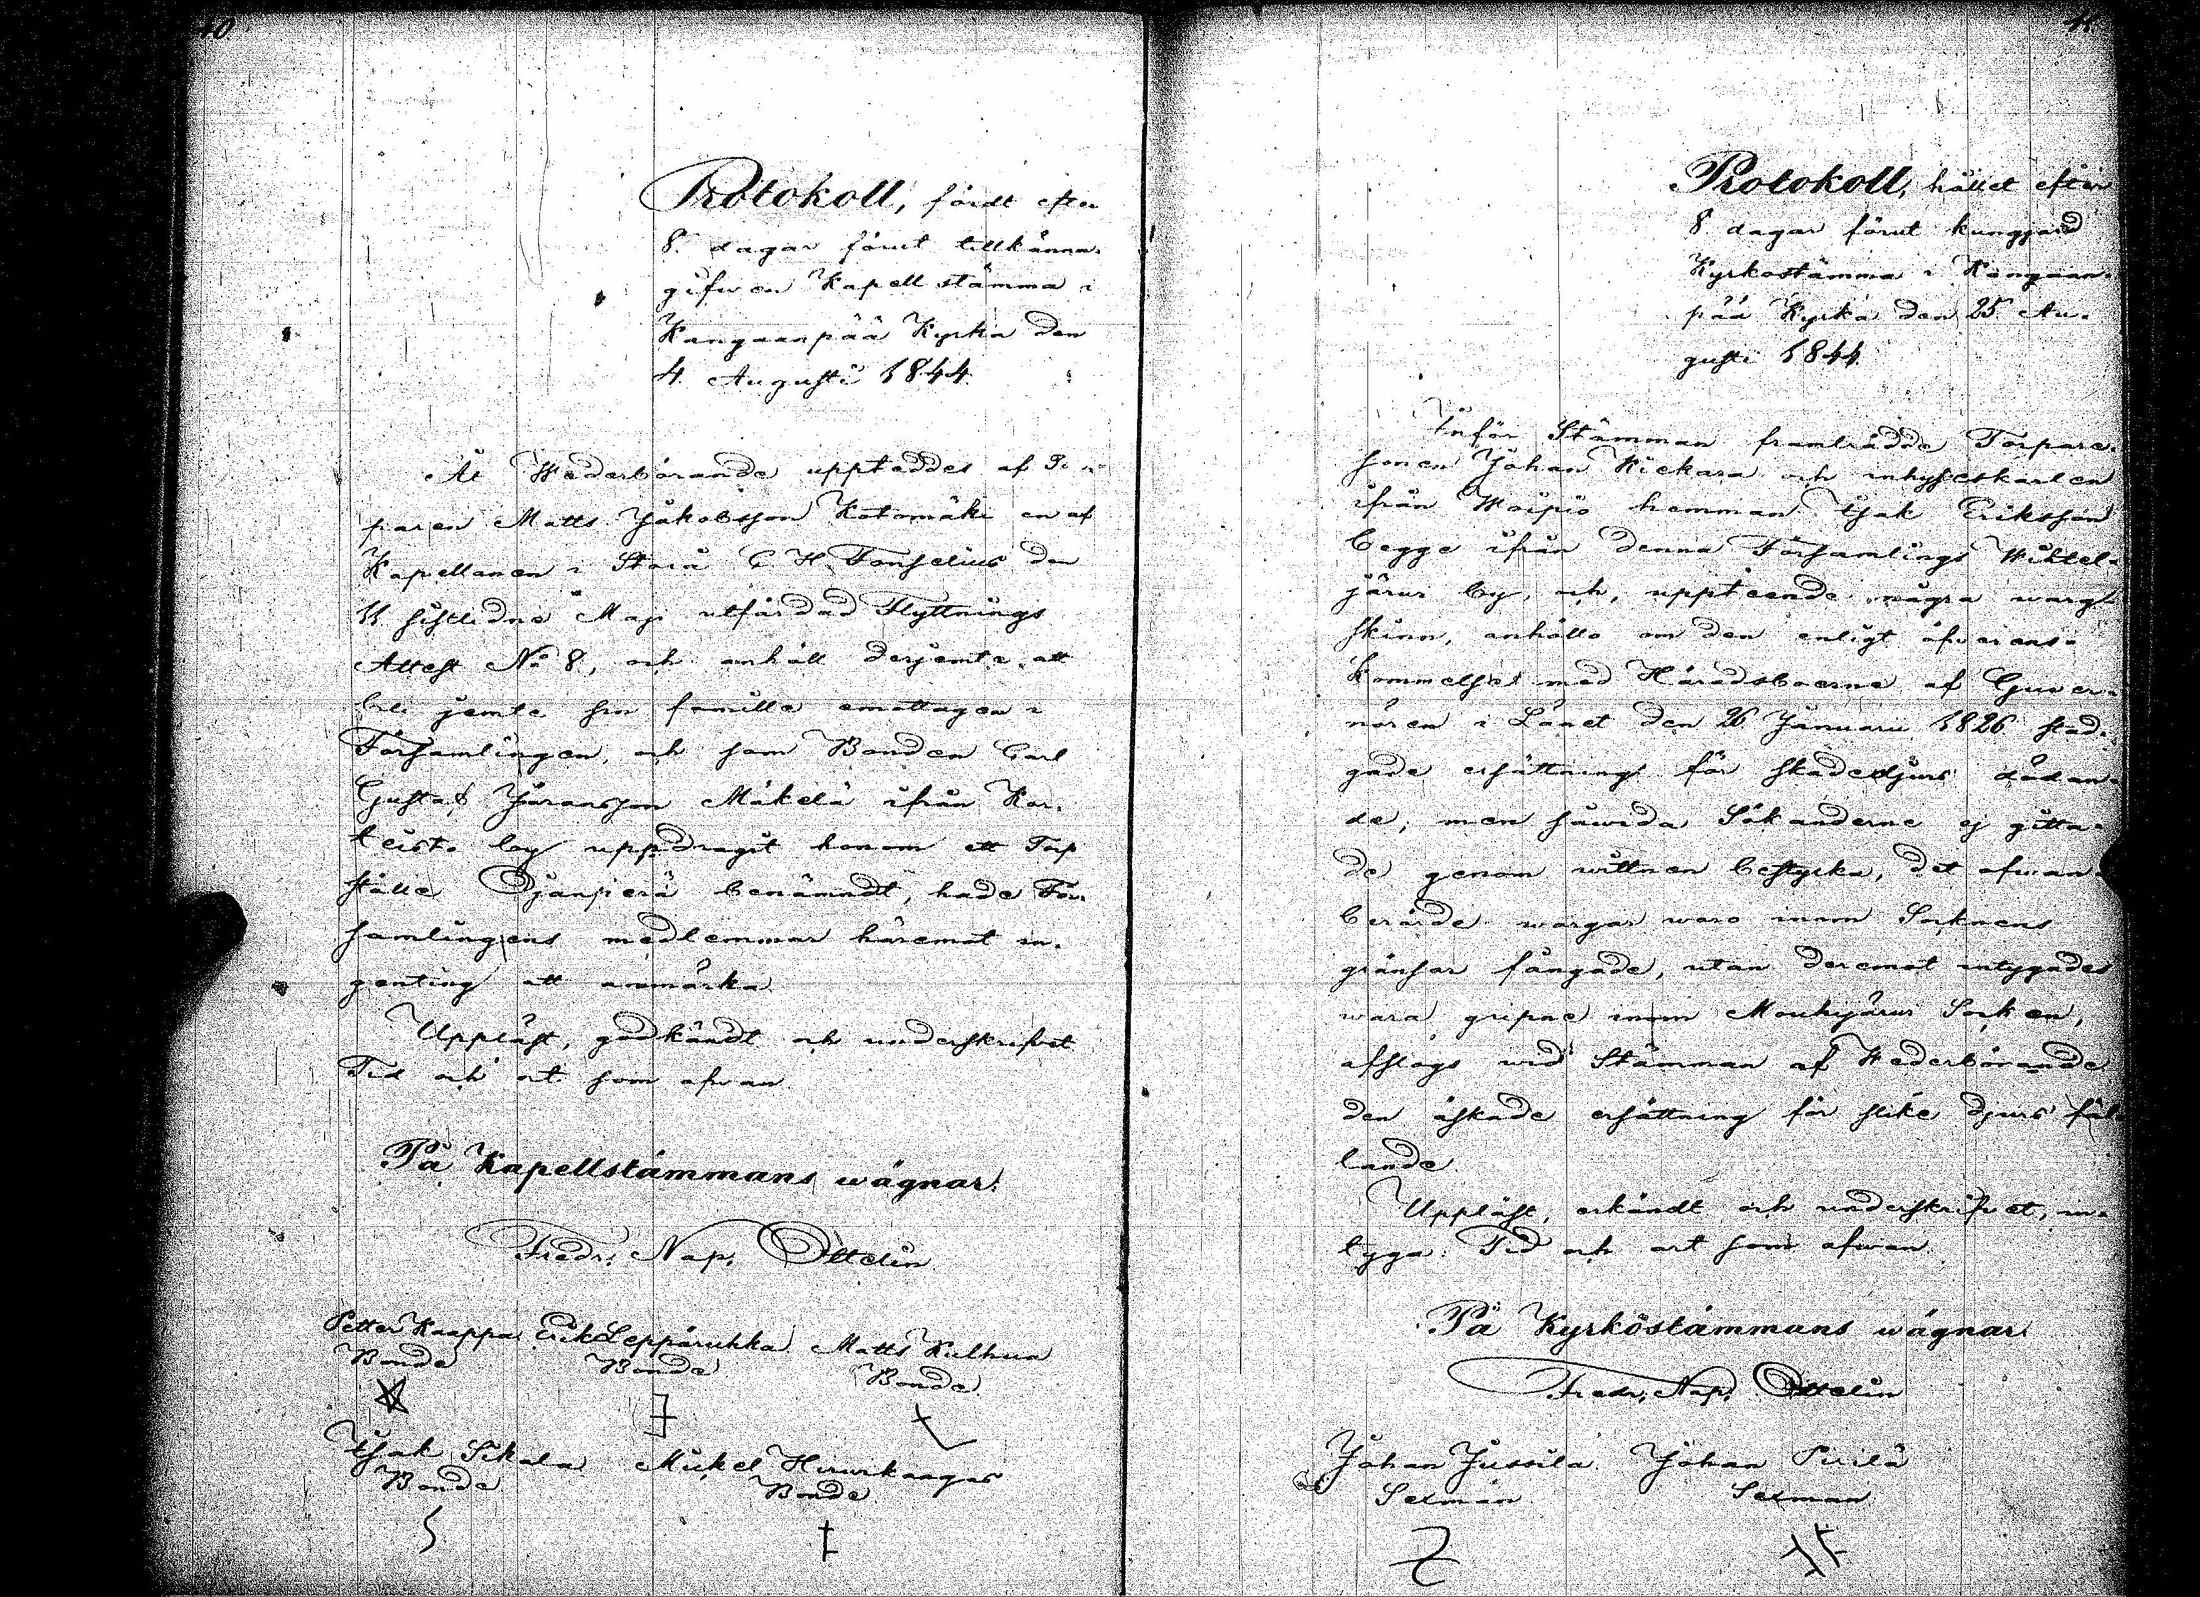 40
Protokoll, fördt efter
8 dagar förut tillkänna-
gifwen Kapellstämma i
Kangaanpää Kyrka den
4 Augusti 1844.
At Wederbörande uppteddes af Tor
paren Matts Jakobsson Kotomäki en af
Kapellanen i Storå C. H. Fonselius den
11 sistledne Maji utfärdad Flyttnings
Attest No 8, och anhöll derjemte att
bli jemte sin famille emottagen i
Församlingen, och som Bonden Carl
Gustaf Jöransson Mäkelä ifrån Kar-
teisto by uppdragit honom ett Torp
ställe Ojanperä benämndt, hade För-
samlingens medlemmar häremot in-
genting att anmärka.
Uppläst, godkändt och underskrifvet
Tid och ort som ofwan.
På Kapellstämmans wägnar:
Fredr. Nap. Ottelin
Petter Kaappa Erik Leppäruhka Matts Kulhua
Bonde Bonde Bonde
Isak Sikala Mickel Hirwikangas
Bonde Bonde
41
Protokoll, hållet efter
8 dagar förut kungjord
Kyrkostämma i Kangaan-
pää Kyrka den 25 Au-
gusti 1844.
Inför Stämman framträdde Torpare-
sonen Johan Kiekara och inhyseskarlen
ifrån Woipio hemman Isak Eriksson
begge ifrån denna Församlings Wihtel-
järwi by, och, uppteende några warg-
skinn, anhöllo om den enligt öfverens-
kommelse med Häradsboerne af Guver-
nören i Länet den 26 Januarii 1826 stad-
gade ersättning för skadedjurs dödan-
de; men såwida Sökanderne ej gitta-
de genom wittnen bestyrka, det ofwan-
berörde wargar woro inom Socknens
gränsar fångade, utan deremot intygades
wara gripne inom Mouhijärwi Socken,
afslogs wid Stämman af Wederbörande
den äskade ersättning för slike djurs fäl-
lande.
Uppläst, erkändt och underskrifvet, in-
tyga. Tid och ort som ofwan.
På Kyrkostämmans wägnar
Fredr. Nap. Ottelin
Johan Jussila Johan Pirilä
Sexman Sexman